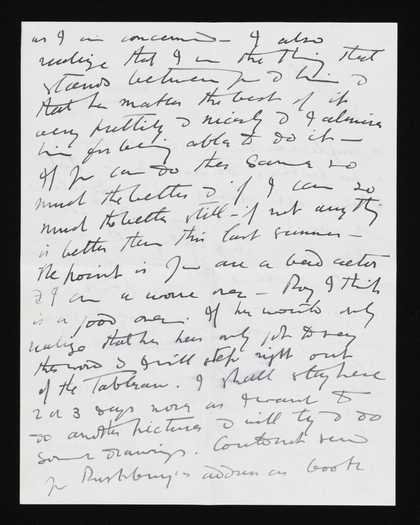 as I am concerned – I also
realize that I am the thing that
stands between you & him &
that he makes the best of it
very prettily & nicely & I admire
him for being able to do it –
If you can do the same so
much the better & if I can so
much the better still – if not anything
is better than this last summer –
The point is you are a bad actor
& I am a worse one – Roy I think
is a good one. If he would only
realize that he has only got to say
the word & I will step right out
of the Tableau. I shall stay here
2 or 3 days more as I want to
do another picture & will try to do
some drawings. Contoret send
you address as book